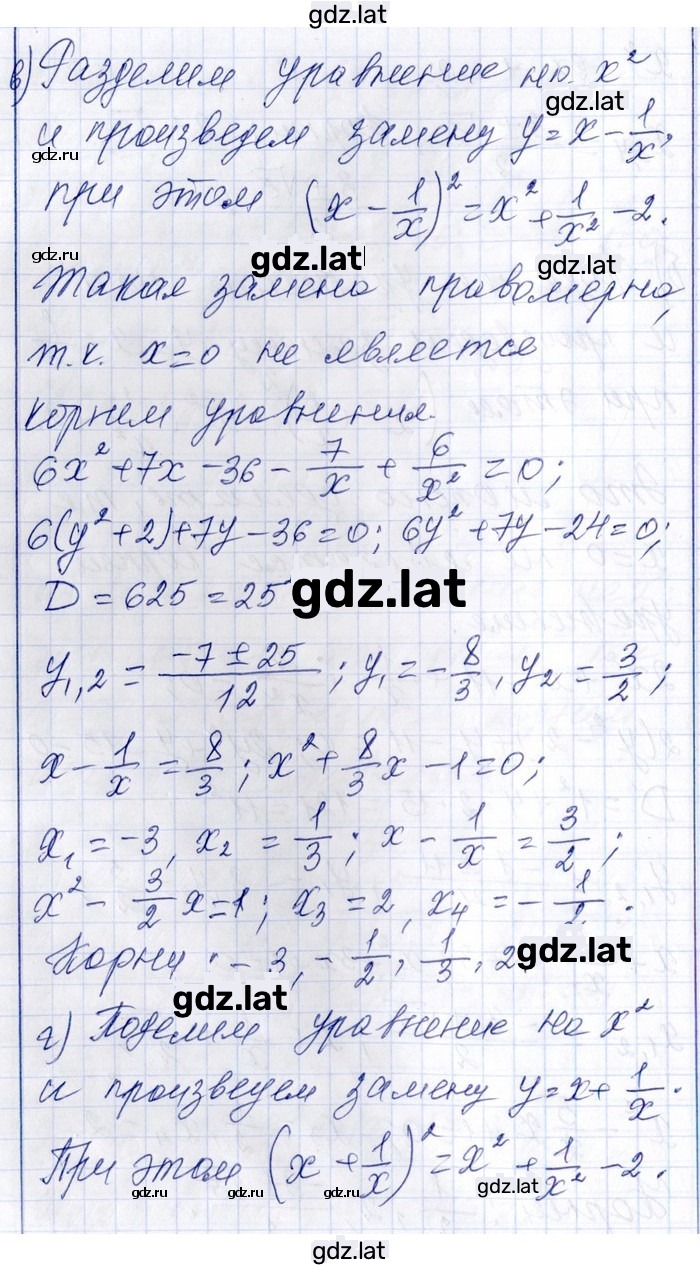 gdz.lat
в) Разделим уравнение на x²
gdz.lat
и произведем замену y = x - 1/x,
gdz.ru
при этом (x - 1/x)² = x² + 1/x² - 2.
gdz.ru gdz.lat gdz.lat
Такая замена правомерна,
т.к. x=0 не является
корнем уравнения.
6x² + 7x - 36 - 7/x + 6/x² = 0;
6(y² + 2) + 7y - 36 = 0; 6y² + 7y - 24 = 0;
D = 625 = 25 gdz.lat
y₁,₂ = (-7 ± 25)/12; y₁ = -8/3, y₂ = 3/2;
x - 1/x = 8/3; x² + 8/3 x - 1 = 0;
x₁ = -3, x₂ = 1/3; x - 1/x = 3/2;
x² - 3/2 x = 1; x₃ = 2, x₄ = -1/2.
Корни: -3, -1/2, 1/3, 2 gdz.lat
gdz.lat
г) Поделим уравнение на x²
и произведем замену y = x + 1/x.
При этом (x + 1/x)² = x² + 1/x² - 2.
gdz.ru gdz.ru gdz.ru gdz.lat gdz.ru
gdz.lat